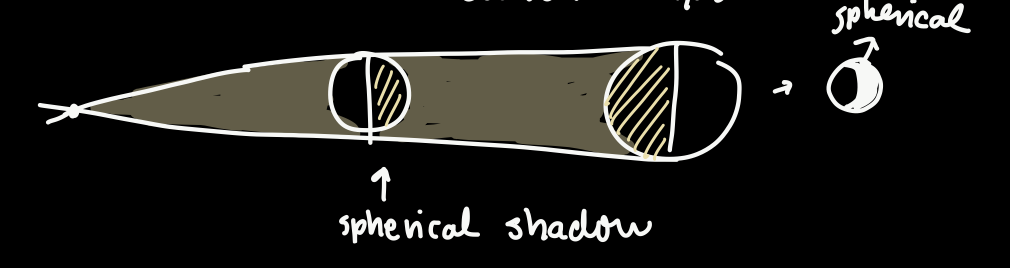 spherical
spherical shadow